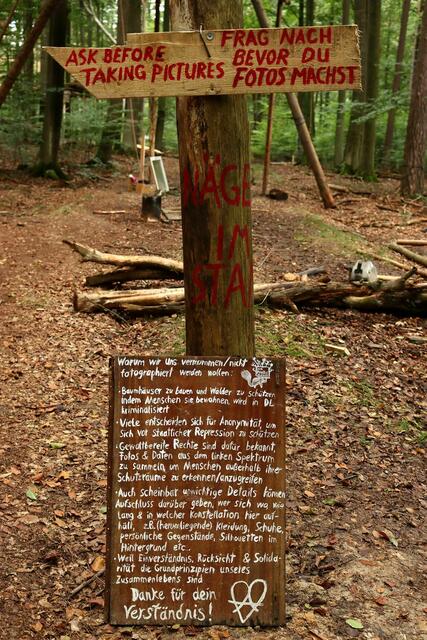 ASK BEFORE
TAKING PICTURES
FRAG NACH
BEVOR DU
FOTOS MACHST
NÄGE
IM
STA
Warum wir uns vermummen/nicht
fotografiert werden wollen:
• Baumhäuser zu bauen und Wälder zu schützen
indem Menschen sie bewohnen, wird in DL
kriminalisiert
• Viele entscheiden sich für Anonymität, um
sich vor staatlicher Repression zu schützen
• Gewaltbereite Rechte sind dafür bekannt,
Fotos & Daten aus dem linken Spektrum
zu sammeln, um Menschen außerhalb ihrer
Schutzräume zu erkennen/anzugreifen
• Auch scheinbar unwichtige Details können
Aufschluss darüber geben, wer sich wo wie
lang & in welcher Konstellation hier auf-
hält, z.B. (herumliegende) Kleidung, Schuhe,
persönliche Gegenstände, Silhouetten im
Hintergrund etc..
• Weil Einverständnis, Rücksicht & Solida-
rität die Grundprinzipien unseres
Zusammenlebens sind
Danke für dein
Verständnis!